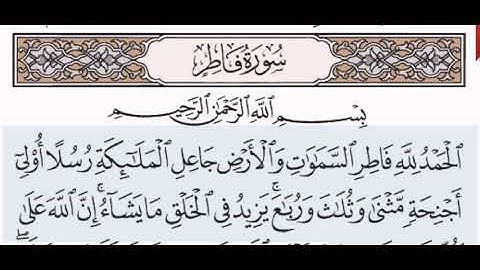 سُورَةُ فَاطِرٍ
بِسْمِ اللَّهِ الرَّحْمَٰنِ الرَّحِيمِ
الْحَمْدُ لِلَّهِ فَاطِرِ السَّمَاوَاتِ وَالْأَرْضِ جَاعِلِ الْمَلَائِكَةِ رُسُلًا أُوْلِي
أَجْنِحَةٍ مَّثْنَىٰ وَثُلَاثَ وَرُبَاعَ ۚ يَزِيدُ فِي الْخَلْقِ مَا يَشَاءُ ۚ إِنَّ اللَّهَ عَلَىٰ